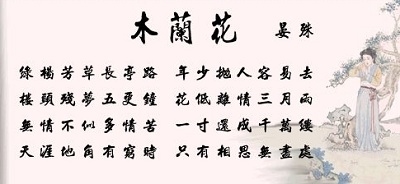 木蘭花 晏殊
綠楊芳草長亭路 年少拋人容易去
樓頭殘夢五更鐘 花底離情三月雨
無情不似多情苦 一寸還成千萬縷
天涯地角有窮時 只有相思無盡處